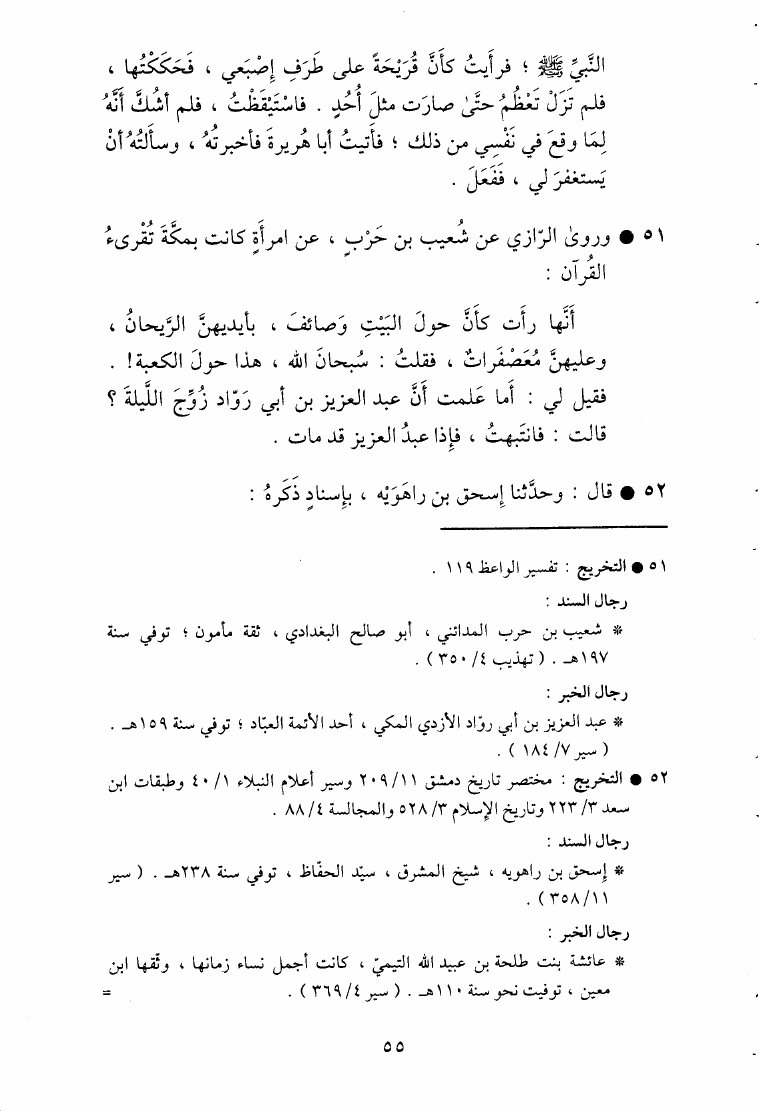 النَّبيِّ ﷺ ؛ فرأيتُ كأنَّ قُرَيْحَةً على طَرَفِ إصْبَعي ، فَحَكَكْتُها ،
فلم تزَلْ تَعْظُمُ حتَّىٰ صارَت مثلَ أُحُدٍ . فاسْتَيْقَظْتُ ، فلم أشُكَّ أنَّهُ
لِمَا وقعَ في نَفْسِي من ذلك ؛ فأتيتُ أبا هُريرةَ فأخبرتُهُ ، وسألتُهُ أنْ
يَستغفرَ لي ، فَفَعَلَ .
٥١ ● وروىٰ الرّازي عن شُعيب بن حَرْبٍ ، عن امرأةٍ كانت بمكَّةَ تُقْرىءُ
القُرآن :
أنَّها رأت كأنَّ حولَ البَيْتِ وَصائفَ ، بأيديهنَّ الرَّيحانُ ،
وعليهنَّ مُعَصْفَراتٌ ، فقلتُ : سُبحانَ الله ، هذا حولَ الكعبة! .
فقيل لي : أما عَلمت أنَّ عبد العزيز بن أبي رَوّاد زُوِّجَ اللَّيلةَ ؟
قالت : فانتَبهتُ ، فإذا عبدُ العزيز قد مات .
٥٢ ● قال : وحدَّثنا إسحق بن راهَوَيْه ، بإسنادٍ ذَكَرهُ :
٥١ ● التخريج : تفسير الواعظ ١١٩ .
رجال السند :
* شعيب بن حرب المدائني ، أبو صالح البغدادي ، ثقة مأمون ؛ توفي سنة
١٩٧هـ . ( تهذيب ٤/ ٣٥٠ ) .
رجال الخبر :
* عبد العزيز بن أبي روّاد الأزدي المكي ، أحد الأئمة العبّاد ؛ توفي سنة ١٥٩هـ .
( سير ٧/ ١٨٤ ) .
٥٢ ● التخريج : مختصر تاريخ دمشق ١١/ ٢٠٩ وسير أعلام النبلاء ١/ ٤٠ وطبقات ابن
سعد ٣/ ٢٢٣ وتاريخ الإسلام ٣/ ٥٢٨ والمجالسة ٤/ ٨٨ .
رجال السند :
* إسحق بن راهويه ، شيخ المشرق ، سيّد الحفّاظ ، توفي سنة ٢٣٨هـ . ( سير
١١/ ٣٥٨ ) .
رجال الخبر :
* عائشة بنت طلحة بن عبيد الله التيميّ ، كانت أجمل نساء زمانها ، وثّقها ابن
معين ، توفيت نحو سنة ١١٠هـ . ( سير ٤/ ٣٦٩ ) . =
٥٥